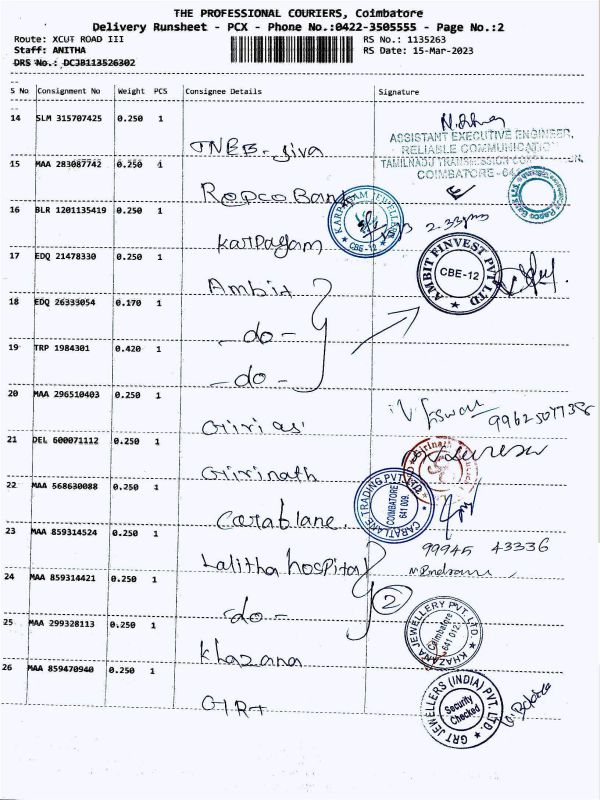 THE PROFESSIONAL COURIERS, Coimbatore
Delivery Runsheet - PCX - Phone No.:0422-3505555 - Page No.:2
Route: XCUT ROAD III RS No.: 1135263
Staff: ANITHA RS Date: 15-Mar-2023
DRS No.: DCJB113526302
S No Consignment No Weight PCS Consignee Details Signature
14 SLM 315707425 0.250 1
TNEB - Jiva
ASSISTANT EXECUTIVE ENGINEER,
RELIABLE COMMUNICATION
TAMILNADU TRANSMISSION
COIMBATORE - 641
15 MAA 283087742 0.250 1
Repco Bank
16 BLR 1201135419 0.250 1
Karpagam
KARPAGAM JEWELLERS
CBE-12
2.33pm
17 EDQ 21478330 0.250 1
Ambit
AMBIT FINVEST PVT LTD
CBE-12
18 EDQ 26333054 0.170 1
- do -
19 TRP 1984301 0.420 1
- do -
20 MAA 296510403 0.250 1
Girias
9962507738
21 DEL 600071112 0.250 1
Girinath
Girinath
22 MAA 568630088 0.250 1
Caratlane
CARATLANE TRADING PVT. LTD
COIMBATORE
641 009
23 MAA 859314524 0.250 1
Lalitha hospital
99945 43336
24 MAA 859314421 0.250 1
- do -
2
25 MAA 299328113 0.250 1
Khazana
KHAZANA JEWELLERY PVT. LTD.
Coimbatore
641 012
26 MAA 859470940 0.250 1
GRT
GRT JEWELLERS (INDIA) PVT. LTD.
Security
Checked